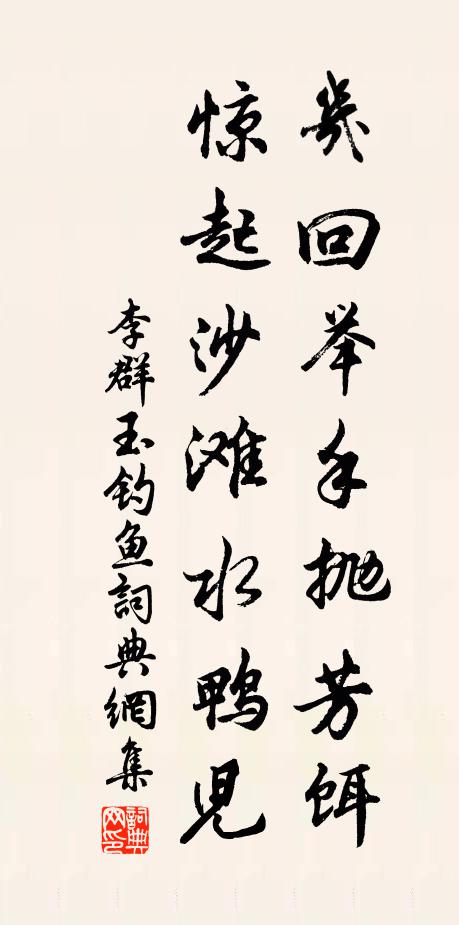 幾回举手抛芳饵
惊起沙滩水鸭児
李群玉钓鱼詞典網集
詞典网印